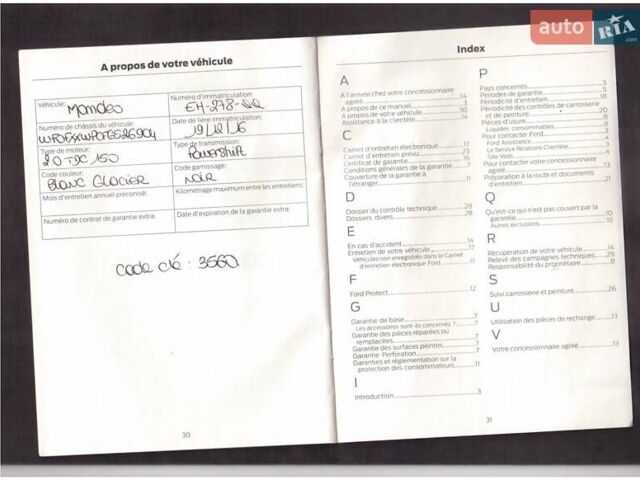 auto RIA .com
A propos de votre véhicule
Véhicule: Mondeo
Numéro d'immatriculation: EH-278-QQ
Numéro de châssis du véhicule:
Date de 1ère immatriculation: 19/12/16
Type de moteur: 2.0 TDC 150
Type de transmission: Powershift
Code couleur: Blanc Glacier
Code garnissage: Noir
Mois d'entretien annuel préconisé:
Kilométrage maximum entre les entretiens:
Numéro de contrat de garantie extra:
Date d'expiration de la garantie extra:
code clé : 3560.
30
Index
A
A l'arrivée chez votre concessionnaire
agréé 14
A propos de ce manuel 3
A propos de votre véhicule 30
Assistance à la clientèle 14
C
Carnet d'entretien électronique 17
Carnet d'entretien prévu 23
Certificat de garantie 16
Conditions générales de la garantie 7
Couverture de la garantie à
l'étranger 11
D
Dossier du contrôle technique 28
Dossiers divers 28
E
En cas d'accident 14
Entretien de votre véhicule 17
véhicules non enregistrés dans le Carnet
d'entretien électronique Ford 17
F
Ford Protect 12
G
Garantie de base 7
Les accessoires sont-ils concernés ? 7
Garantie des pièces réparées ou
remplacées 7
Garantie des surfaces peintes 7
Garantie Perforation 7
Garanties et réglementation sur la
protection des consommateurs 11
I
Introduction 3
P
Pays concernés 3
Périodes de garantie 5
Périodicité d'entretien 18
Périodicité des contrôles de carrosserie
et de peinture 20
Pièces d'usure 8
Liquides consommables 8
Pour contacter Ford 3
Ford Assistance 4
Le Service Relations Clientèle 3
Site Web
Pour contacter votre concessionnaire
agréé 13
Préparation à la route et documents
d'entretien 21
Q
Qu'est-ce qui n'est pas couvert par la
garantie 10
Autres exclusions 10
R
Récupération de votre véhicule 14
Relevé des campagnes techniques 29
Responsabilité du propriétaire 8
S
Suivi carrosserie et peinture 26
U
Utilisation des pièces de rechange 13
V
Votre concessionnaire agréé 13
31